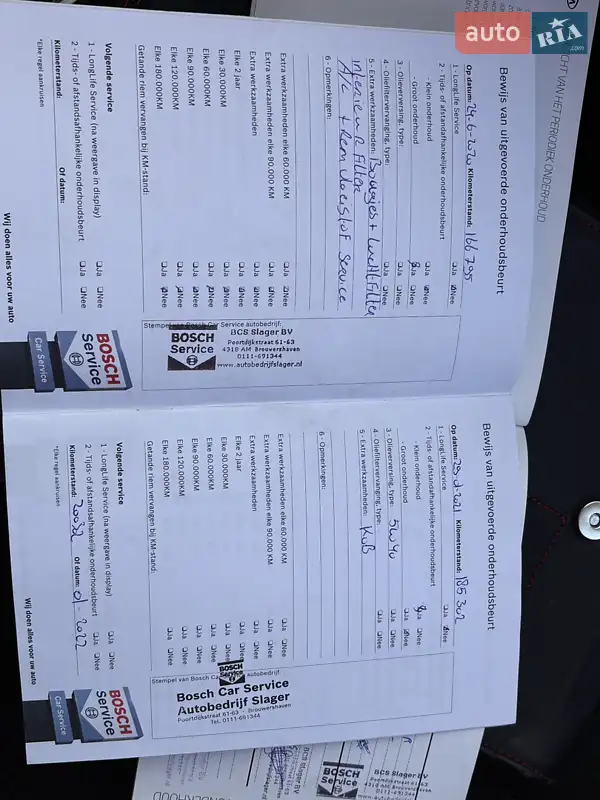 auto
RIA
.com
CHT VAN HET PERIODIEK ONDERHOUD
Bewijs van uitgevoerde onderhoudsbeurt
Op datum: 29-6-2020 Kilometerstand: 166.795
1 - LongLife Service Ja Nee
2 - Tijds- of afstandsafhankelijke onderhoudsbeurt
- Klein onderhoud Ja Nee
- Groot onderhoud Ja Nee
3 - Olieverversing, type: Ja Nee
4 - Oliefiltervervanging, type: Ja Nee
5 - Extra werkzaamheden: Bougies + Luchtfilter
interieur Filter
A/C + Remvloeistof Service
6 - Opmerkingen:
Extra werkzaamheden elke 60.000 KM Ja Nee
Extra werkzaamheden elke 90.000 KM Ja Nee
Extra werkzaamheden Ja Nee
Elke 2 jaar Ja Nee
Elke 30.000KM Ja Nee
Elke 60.000KM Ja Nee
Elke 90.000KM Ja Nee
Elke 120.000KM Ja Nee
Elke 180.000KM Ja Nee
Getande riem vervangen bij KM-stand:
Stempel van Bosch Car Service autobedrijf:
BOSCH
Service
BCS Slager BV
Poortdijkstraat 61-63
4318 AM Brouwershaven
0111-691344
www.autobedrijfslager.nl
Volgende service
1 - LongLife Service (na weergave in display) Ja Nee
2 - Tijds- of afstandsafhankelijke onderhoudsbeurt Ja Nee
Kilometerstand: Of datum:
*Elke regel aankruisen
BOSCH
Service
Car Service
Wij doen alles voor uw auto
Bewijs van uitgevoerde onderhoudsbeurt
Op datum: Kilometerstand: 185302
1 - LongLife Service Ja Nee
2 - Tijds- of afstandsafhankelijke onderhoudsbeurt
- Klein onderhoud Ja Nee
- Groot onderhoud Ja Nee
3 - Olieverversing, type: 5W40 Ja Nee
4 - Oliefiltervervanging, type: Ja Nee
5 - Extra werkzaamheden:
6 - Opmerkingen:
Extra werkzaamheden elke 60.000 KM Ja Nee
Extra werkzaamheden elke 90.000 KM Ja Nee
Extra werkzaamheden
Elke 2 jaar Ja Nee
Elke 30.000KM Ja Nee
Elke 60.000KM Ja Nee
Elke 90.000KM Ja Nee
Elke 120.000KM Ja Nee
Elke 180.000KM Ja Nee
Getande riem vervangen bij KM-stand:
Stempel van Bosch Car autobedrijf:
BOSCH
Service
Bosch Car Service
Autobedrijf Slager
Poortdijkstraat 61-63 - Brouwershaven
Tel. 0111-691344
Volgende service
1 - LongLife Service (na weergave in display) Ja Nee
2 - Tijds- of afstandsafhankelijke onderhoudsbeurt Ja Nee
Kilometerstand: Of datum: 01-2022
*Elke regel aankruisen
BOSCH
Service
Car Service
Wij doen alles voor uw auto
BCS Slager BV
BOSCH
Service
BCS Slager BV